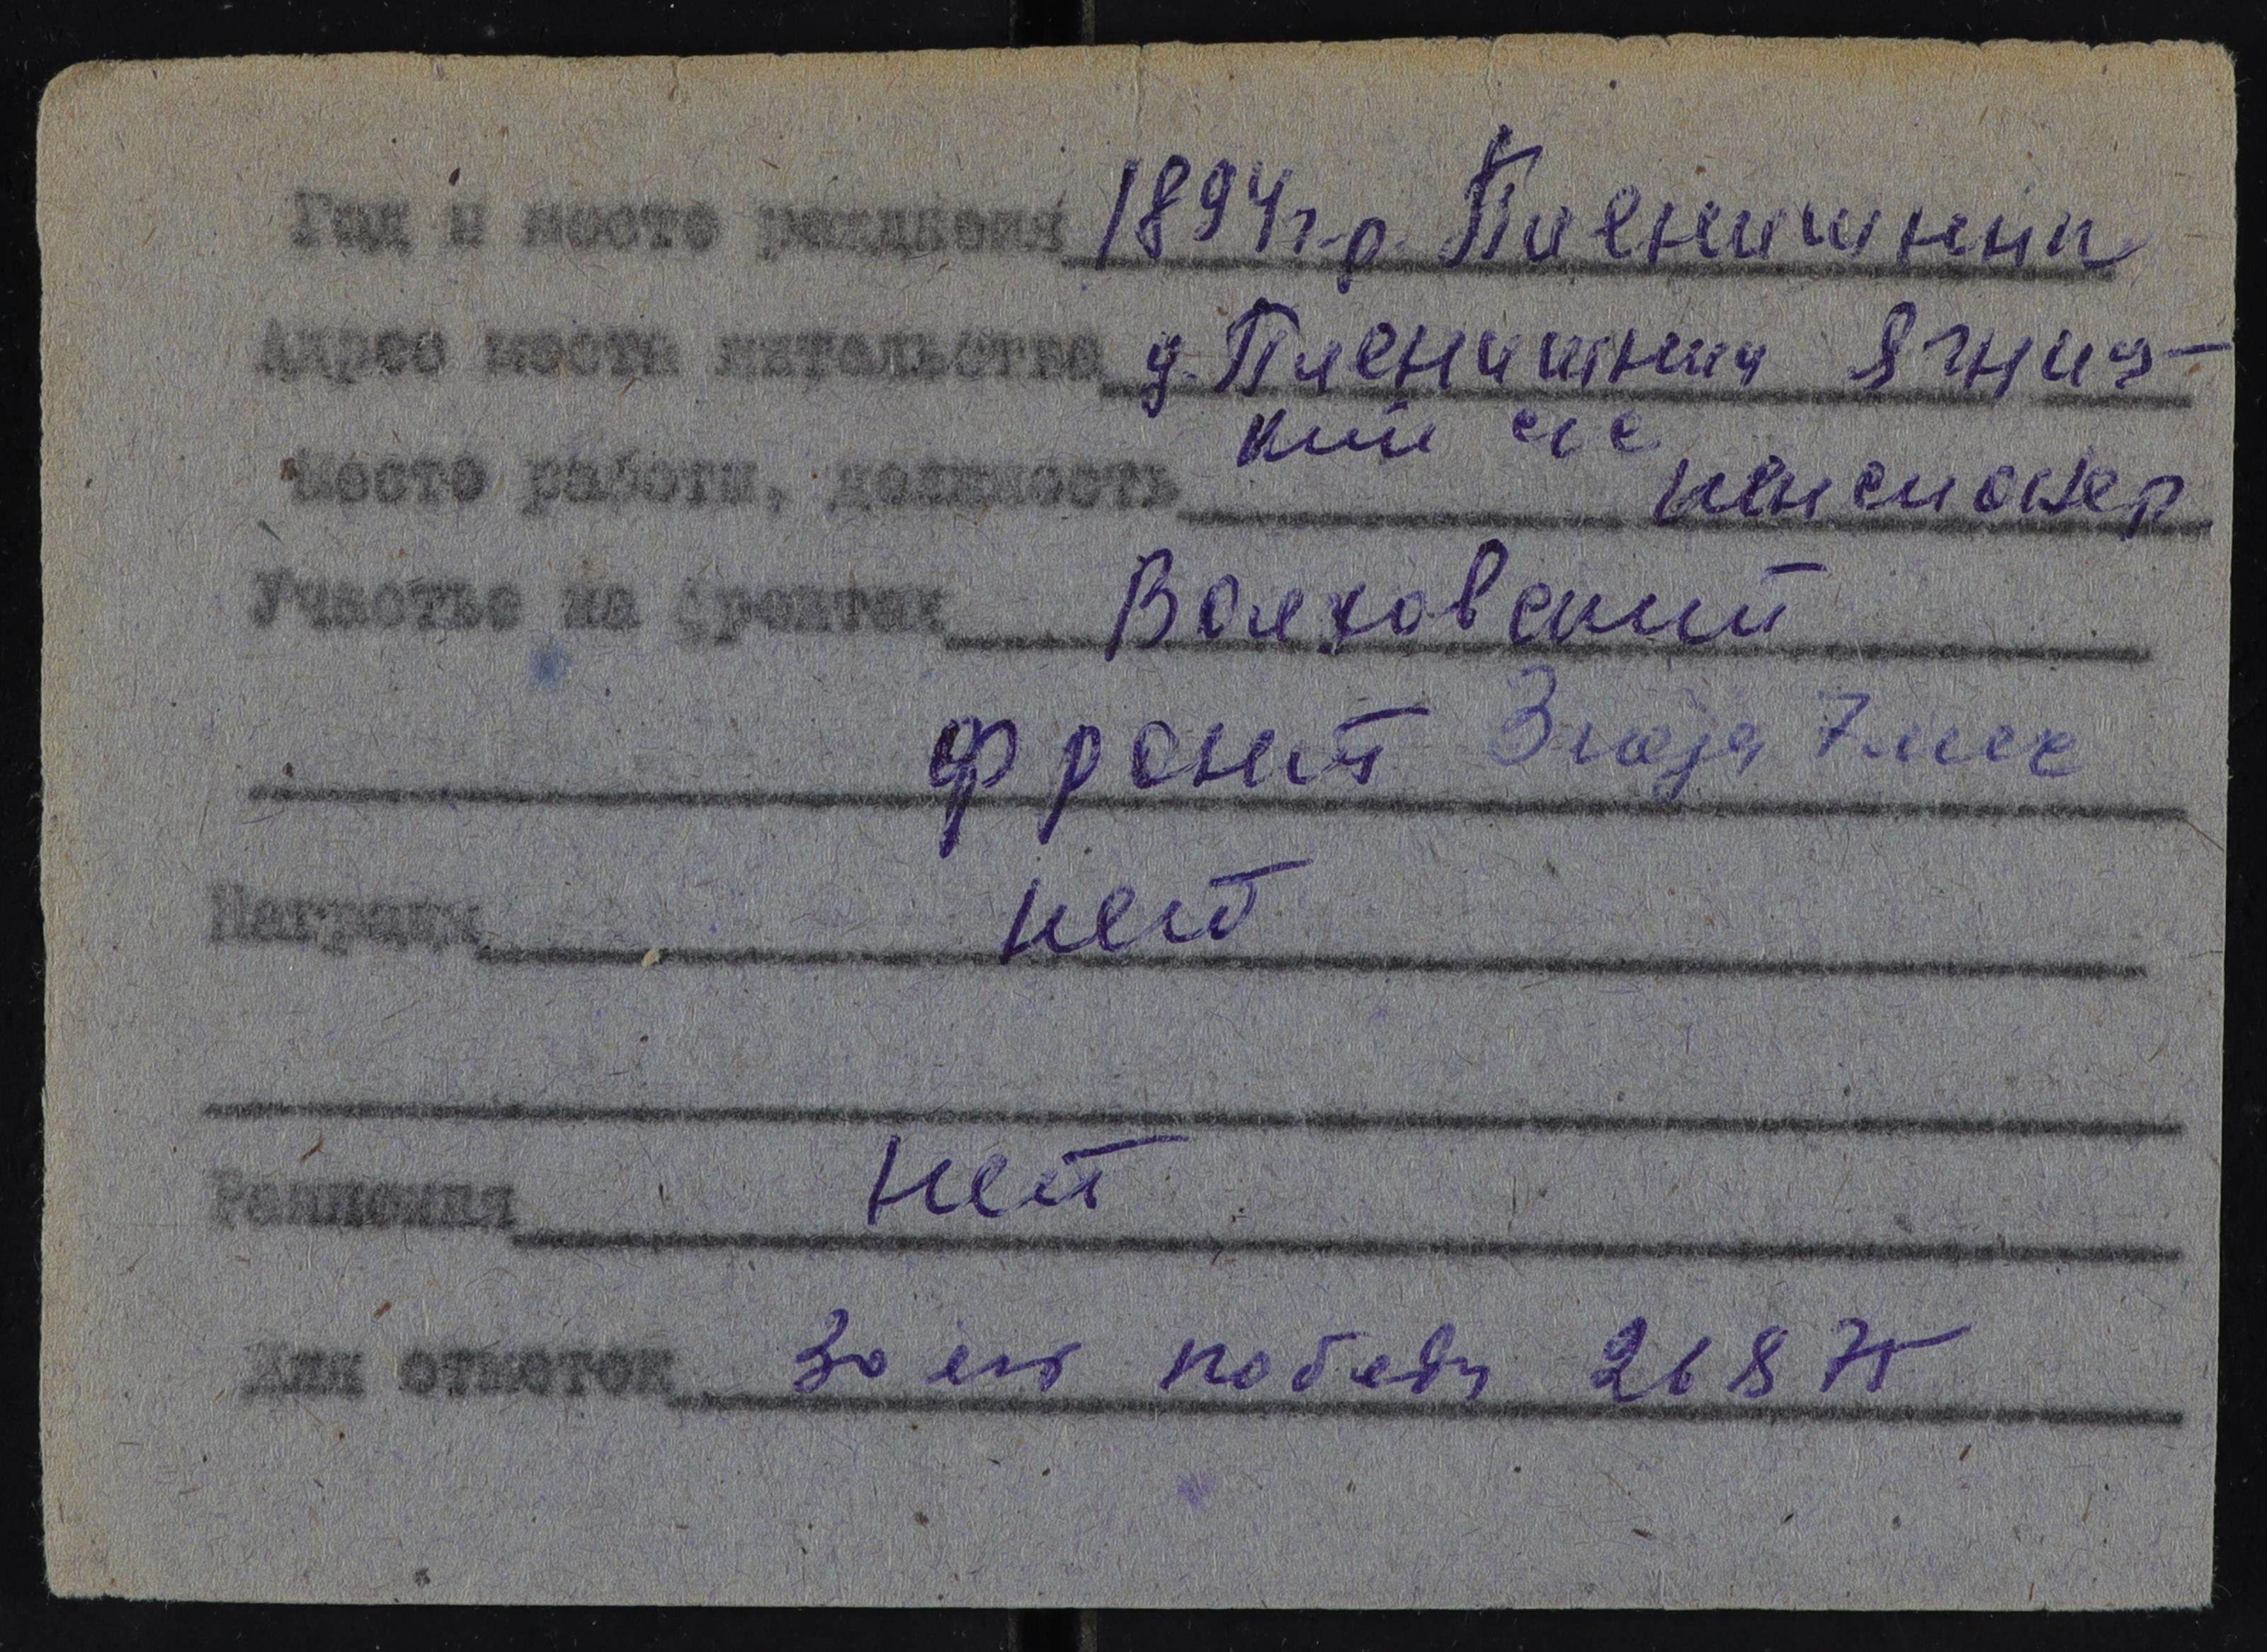 Год и место рождения 1894 г.р. Пленишник
Адрес места жительства д. Пленишник Ягниц-
кий с/с
Место работы, должность пенсионер
Участье на фронтах Волховский
фронт 3 года 7 мес
Награды нет
Ранения нет
Для отметок 30 лет победы 26 8 75